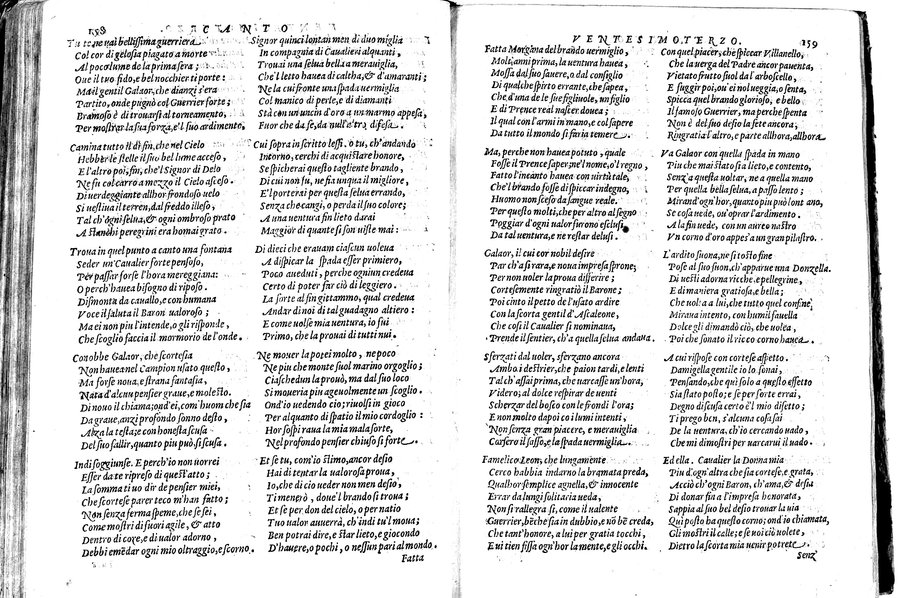 158 CANTO
Tu te ne vai bellissima guerriera
Col cor di gelosia piagato a morte
Al poco lume de la prima sera;
Oue il tuo fido, e bel nocchier ti porte:
Ma il gentil Galaor, che dianzi s'era
Partito, onde pugnò col Guerrier forte;
Bramoso è di trouarsi al torneamento,
Per mostrar la sua forza, e'l suo ardimento,
Camina tutto il dì fin, che nel Cielo
Hebber le stelle il suo bel lume acceso,
E l'altro poi, fin, che'l Signor di Delo
Ne fu col carro a mezzo il Cielo asceso.
Di uerdeggiante allhor frondoso uelo
Si uestiua il terren, dal freddo illeso,
Tal ch'ogni selua, & ogni ombroso prato
A stanchi peregrini era homai grato.
Troua in quel punto a canto una fontana
Seder un Caualier forte pensoso,
Per passar forse l'hora mereggiana:
O perch'hauea bisogno di riposo.
Dismonta da cauallo, e con humana
Voce il saluta il Baron ualoroso;
Ma ei non piu l'intende, o gli risponde,
Che scoglio faccia il mormorio de l'onde.
Conobbe Galaor, che scortesia
Non hauea nel Campion usato questo,
Ma forse noua, e strana fantasia,
Nata d'alcun pensier graue, e molesto.
Di nouo il chiama; ond'ei, com'huom che sia
Da graue, anzi profondo sonno desto,
Alza la testa; e con honesta scusa
Del suo fallir, quanto piu può, si scusa.
Indi soggiunse. E perch'io non uorrei
Esser da te ripreso di quest'atto;
La somma ti uo dir de pensier miei,
Che scortese parer teco m'han fatto;
Non senza ferma speme, che se sei,
Come mostri di fuori agile, & atto
Dentro di core, e di ualor adorno,
Debbi emēdar ogni mio oltraggio, e scorno.
Signor quinci lontan men di duo miglia
In compagnia di Caualieri alquanti,
Trouai una selua bella a merauiglia,
Che'l letto hauea di caltha, & d'amaranti;
Ne la cui fronte una spada uermiglia
Col manico di perle, e di diamanti
Stà con un uncin d'oro a un marmo appesa,
Fuor che da se, da null'altra difesa.
Cui sopra in scritto lessi. o tu, ch'andando
Intorno, cerchi di acquistare honore,
Se spicherai questo tagliente brando,
Di cui non fu, ne fia unqua il migliore,
E'l porterai per questa selua errando,
Senza che cangi, o perda il suo colore;
A una uentura fin lieto darai
Maggior di quante si son uiste mai:
Di dieci che erauam ciascun uoleua
A dispicar la spada esser primiero,
Poco aueduti, perche ognun credeua
Certo di poter far ciò di leggiero.
La sorte al fin gittammo, qual credeua
Andar di noi di tal guadagno altiero:
E come uolse mia uentura, io fui
Primo, che la prouai di tutti nui.
Ne mouer la potei molto, ne poco
Ne piu che monte suol marino orgoglio;
Ciaschedun la prouò, ma dal suo loco
Si moueria piu ageuolmente un scoglio.
Ond'io uedendo cio; riuolsi in gioco
Per alquanto di spatio il mio cordoglio:
Hor sospiraua la mia mala sorte,
Nel profondo pensier chiuso sì forte.
Et se tu, com'io stimo, ancor desio
Hai di tentar la ualorosa proua,
Io, che di cio ueder non men desio,
Ti menerò, doue'l brando si troua;
Et se per don del cielo, o per natio
Tuo ualor auuerrà, ch'indi tu'l moua;
Ben potrai dire, e star lieto, e giocondo
D'hauere, o pochi, o nessun pari al mondo.
Fatta
VENTESIMOTERZO. 159
Fatta Morgana del brando uermiglio,
Molti anni prima, la uentura hauea,
Mossa dal suo sauere, o dal consiglio
Di qualche spirto errante, che sapea,
Che d'una de le sue figliuole, un figlio
E di Prence real nascer douea;
Il qual con l'armi in mano, e col sapere
Da tutto il mondo si faria temere.
Ma, perche non hauea potuto, quale
Fosse il Prence saper, ne'l nome, o'l regno,
Fatto l'incanto hauea con uirtù tale,
Che'l brando fosse di spiccar indegno,
Huomo non sceso da sangue reale.
Per questo molti, che per altro al segno
Poggiar d'ogni ualor furono esclusi
Da tal uentura, e ne restar delusi.
Galaor, il cui cor nobil desire
Par ch'a si rara, e noua impresa sprone;
Per non uoler la proua differire;
Cortesemente ringratiò il Barone;
Poi cinto il petto de l'usato ardire
Con la scorta gentil d'Ascaleone,
Che così il Caualier si nominaua,
Prende il sentier, ch'a quella selua andaua.
Sferzati dal uoler, sferzano ancora
Ambo i destrier, che paion tardi, e lenti
Tal ch'assai prima, che uarcasse un'hora,
Videro, al dolce respirar de uenti
Scherzar del bosco con le frondi l'ora;
E non molto dapoi co i lumi intenti,
Non senza gran piacere, e merauiglia
Corsero il sasso, e la spada uermiglia.
Famelico Leon, che lungamente
Cerco habbia indarno la bramata preda,
Qualhor semplice agnella, & innocente
Errar da lungi solitaria ueda,
Non si rallegra sì, come il ualente
Guerrier, bēche sia in dubbio, e nō bē creda,
Che tant'honore, a lui per gratia tocchi,
E ui tien fissa ogn'hor la mente, e gli occhi.
Con quel piacer, che spiccar Villanello,
Che la uerga del Padre ancor pauenta,
Vietato frutto suol da l'arboscello,
E fuggir poi, ou'ei nol ueggia, o senta,
Spicca quel brando glorioso, e bello
Il famoso Guerrier, ma perche spenta
Non è del suo desio la sete ancora;
Ringratia l'altro, e parte allhora, allhora.
Va Galaor con quella spada in mano
Piu che mai stato sia lieto, e contento,
Senz'a questa uoltar, ne a quella mano
Per quella bella selua, a passo lento;
Mirand'ogn'hor, quanto piu può lontano,
Se cosa uede, ou'oprar l'ardimento.
A la fin uede, con un aureo nastro
Vn corno d'oro appes'a un gran pilastro.
L'ardito suona, ne si tosto fine
Pose al suo suon, ch'apparue una Donzella.
Di uesti adorna ricche, e pellegrine,
E di maniera gratiosa, e bella;
Che uolta a lui, che tutto quel confine
Miraua intento, con humil fauella
Dolce gli dimandò ciò, che uolea,
Poi che sonato il ricco corno hauea.
A cui rispose con cortese aspetto.
Damigella gentile io lo sonai,
Pensando, che qui solo a questo effetto
Sia stato posto; e se per sorte errai,
Degno di scusa certo è l mio difetto;
Ti prego ben, s'alcuna cosa sai
De la uentura, ch'io cercando uado,
Che mi dimostri per uarcarui il uado.
Ed ella. Caualier la Donna mia
Piu d'ogn'altra che sia cortese, e grata,
Acciò ch'ogni Baron, ch'ama, & desia
Di donar fin a l'impresa honorata,
Sappia al suo bel desio trouar la uia
Qui posto ha questo corno; ond'io chiamata,
Gli mostri il calle; e se uoi ciò uolete,
Dietro la scorta mia uenir potrete.
Senz'